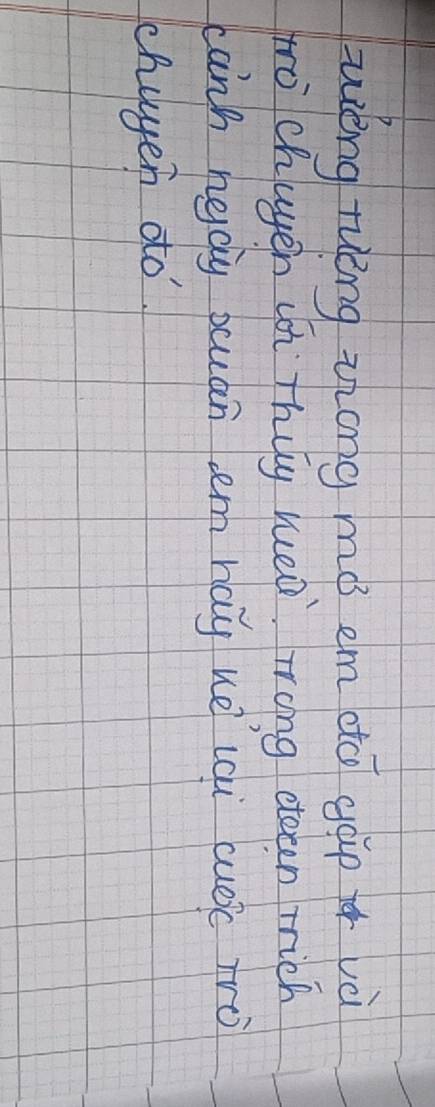 tưởng tượng trong mơ em đã gặp và
trò chuyện với Thúy Kiều. trong đoạn trích
cảnh ngày xuân em hãy kể lại cuộc trò
chuyện đó.